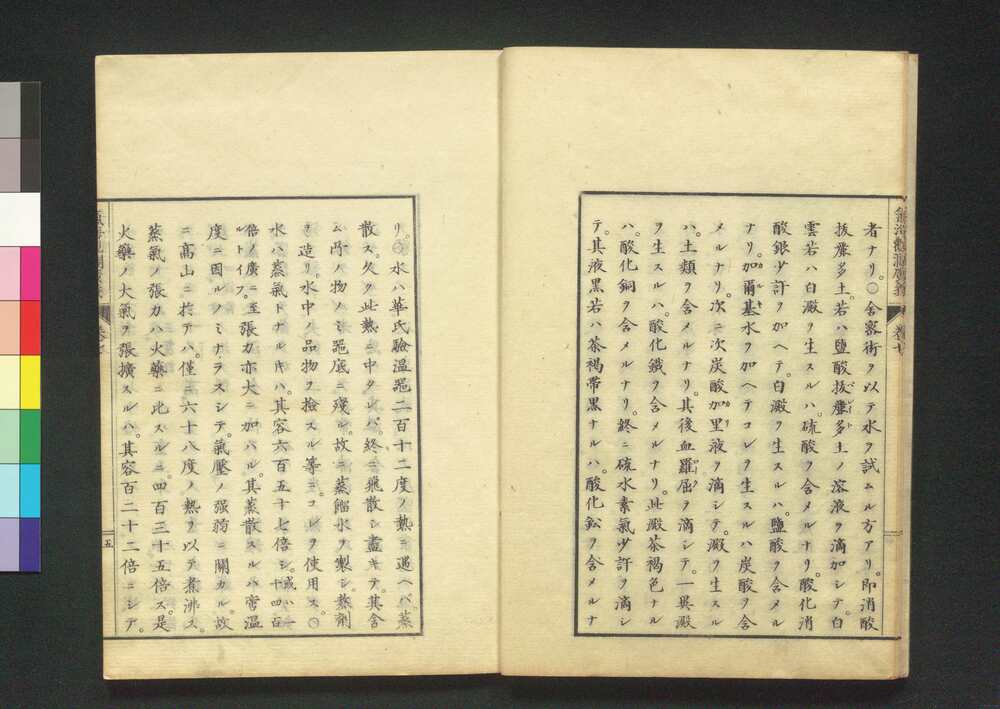 者ナリ。○舎密術ヲ以テ水ヲ試ムル方アリ。即消酸
抜麞多土。若ハ鹽酸抜麞多土ノ溶液ヲ滴加シテ。白
雲若ハ白澱ヲ生スルハ。硫酸ヲ含メルナリ。酸化消
酸銀少許ヲ加ヘテ。白澱ヲ生スルハ。鹽酸ヲ含メル
ナリ。加爾基水ヲ加ヘテコレヲ生スルハ炭酸ヲ含
メルナリ。次ニ次炭酸加里液ヲ滴シテ。澱ヲ生スル
ハ。土類ヲ含メルナリ。其後血羅屈ヲ滴シテ。一異澱
ヲ生スルハ。酸化鐵ヲ含メルナリ。此澱茶褐色ナル
ハ。酸化銅ヲ含メルナリ。終ニ硫水素氣少許ヲ滴シ
テ。其液黒若ハ茶褐帯黒ナルハ。酸化鈆ヲ含メルナ
リ。○水ハ華氏驗温器二百十二度ノ熱ニ遇ヘバ蒸
散ス。久ク此熱ニ中タレバ。終ニ飛散シ盡キテ。其含
ム所ノ物ノミ器底ニ殘ル。故ニ蒸餾水ヲ製シ。蒸劑
ヲ造リ。水中ノ品物ヲ撿スル等ニ。コレヲ使用ス。○
水ハ蒸氣トナルキハ。其容六百五十七倍シ。或ハ一千四百
倍ノ廣ニ至ルトイフ。張力亦大ニ加ハル。其蒸散スルハ常温
度ニ因ルノミナラスシテ。氣壓ノ强弱ニ關カル。故
ニ高山ニ於テハ。僅ニ六十八度ノ熱ヲ以テ煮沸ス。
蒸氣ノ張力ハ火藥ニ比スルニ。四百三十五倍ス。是
火藥ノ大氣ヲ張擴スルハ。其容百二十二倍ニシテ。
五